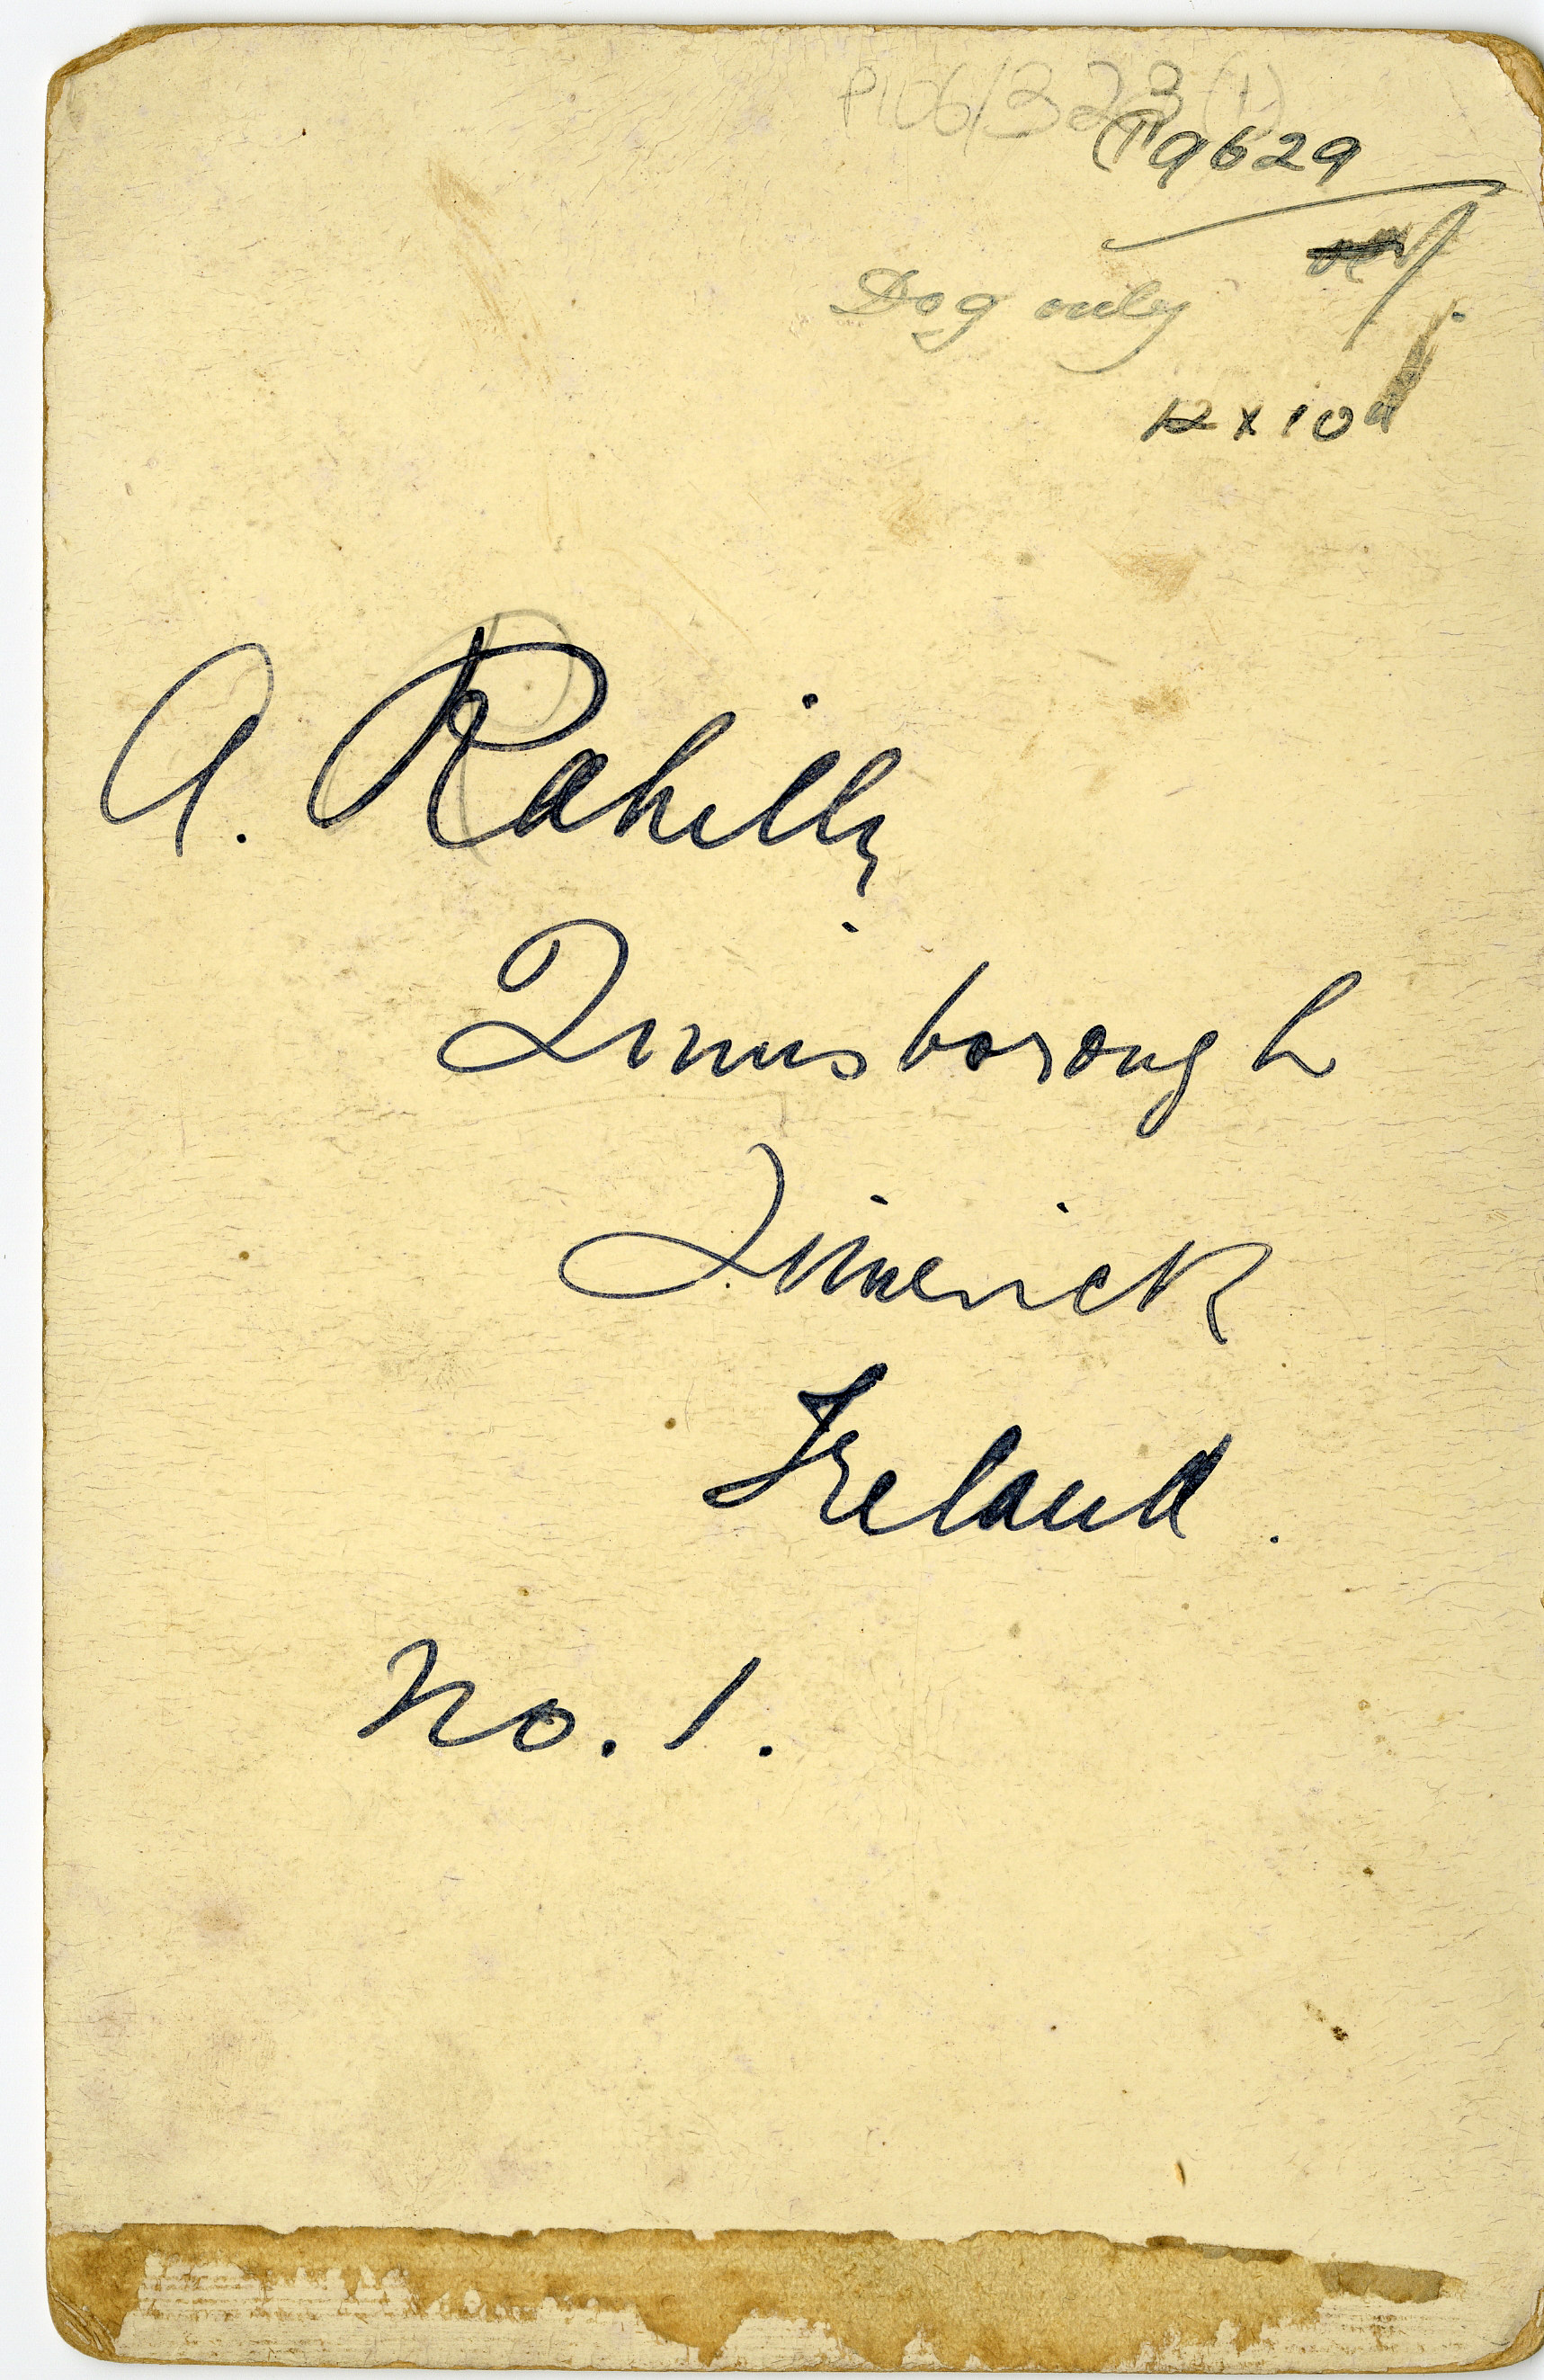 P106/323(1)
9629
Dog only
12 x 10
A. Rahilly
Linnisborough
Limerick
Ireland.
No. 1.